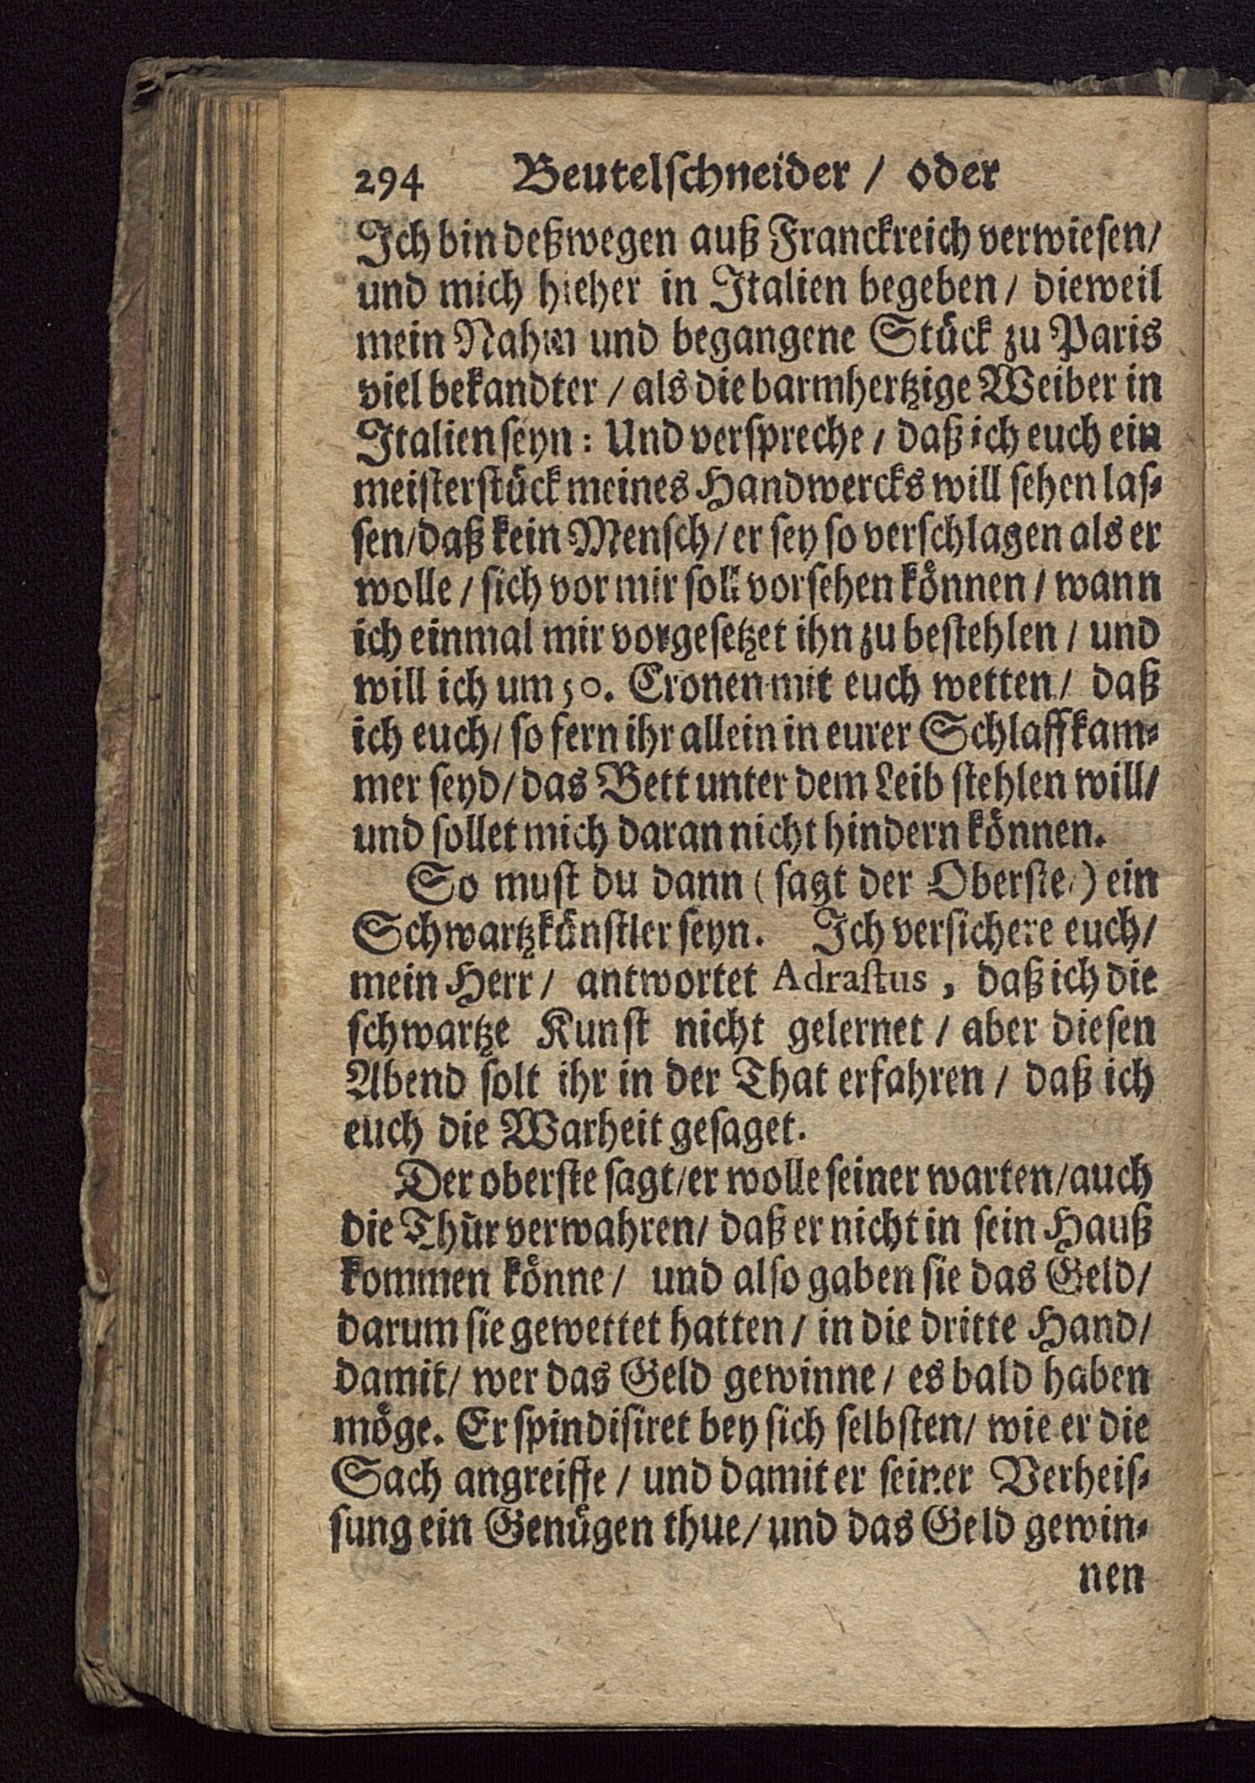 294 Beutelschneider / oder
Ich bin deßwegen auß Franckreich verwiesen/
und mich hieher in Italien begeben / dieweil
mein Nahm und begangene Stück zu Paris
viel bekandter / als die barmhertzige Weiber in
Italien seyn: Und verspreche / daß ich euch ein
meisterstück meines Handwercks will sehen las-
sen/daß kein Mensch/ er sey so verschlagen als er
wolle / sich vor mir soll vorsehen können / wann
ich einmal mir vorgesetzet ihn zu bestehlen / und
will ich um 50. Cronen mit euch wetten / daß
ich euch/ so fern ihr allein in eurer Schlaffkam-
mer seyd/ das Bett unter dem Leib stehlen will/
und sollet mich daran nicht hindern können.
So must du dann (sagt der Oberste/) ein
Schwartzkünstler seyn. Ich versichere euch/
mein Herr/ antwortet Adrastus, daß ich die
schwartze Kunst nicht gelernet / aber diesen
Abend solt ihr in der That erfahren / daß ich
euch die Warheit gesaget.
Der oberste sagt/er wolle seiner warten/auch
die Thür verwahren/ daß er nicht in sein Hauß
kommen könne/ und also gaben sie das Geld/
darum sie gewettet hatten / in die dritte Hand/
damit/ wer das Geld gewinne / es bald haben
möge. Er spindisiret bey sich selbsten/ wie er die
Sach angreiffe / und damit er seiner Verheis-
sung ein Genügen thue/ und das Geld gewin-
nen